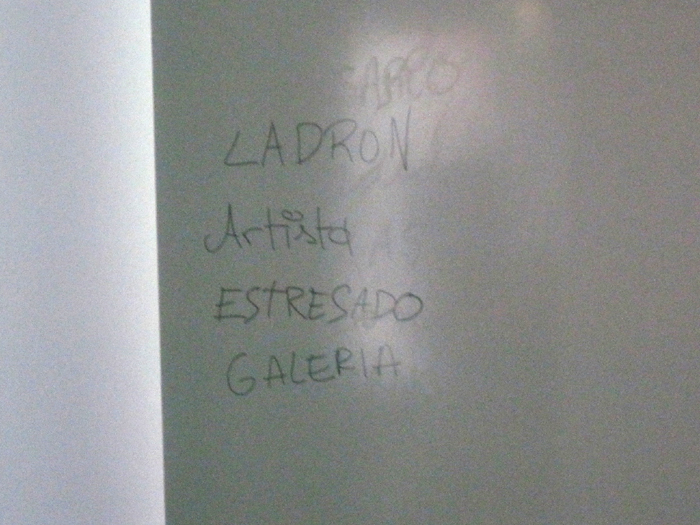 LADRON
Artista
ESTRESADO
GALERIA